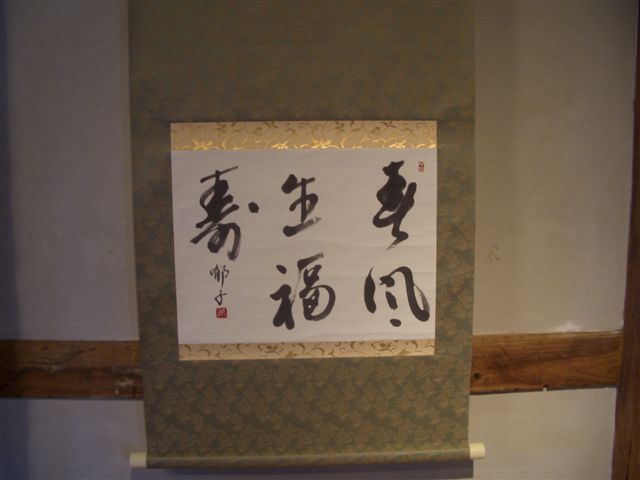 春風
生福
寿
郁子